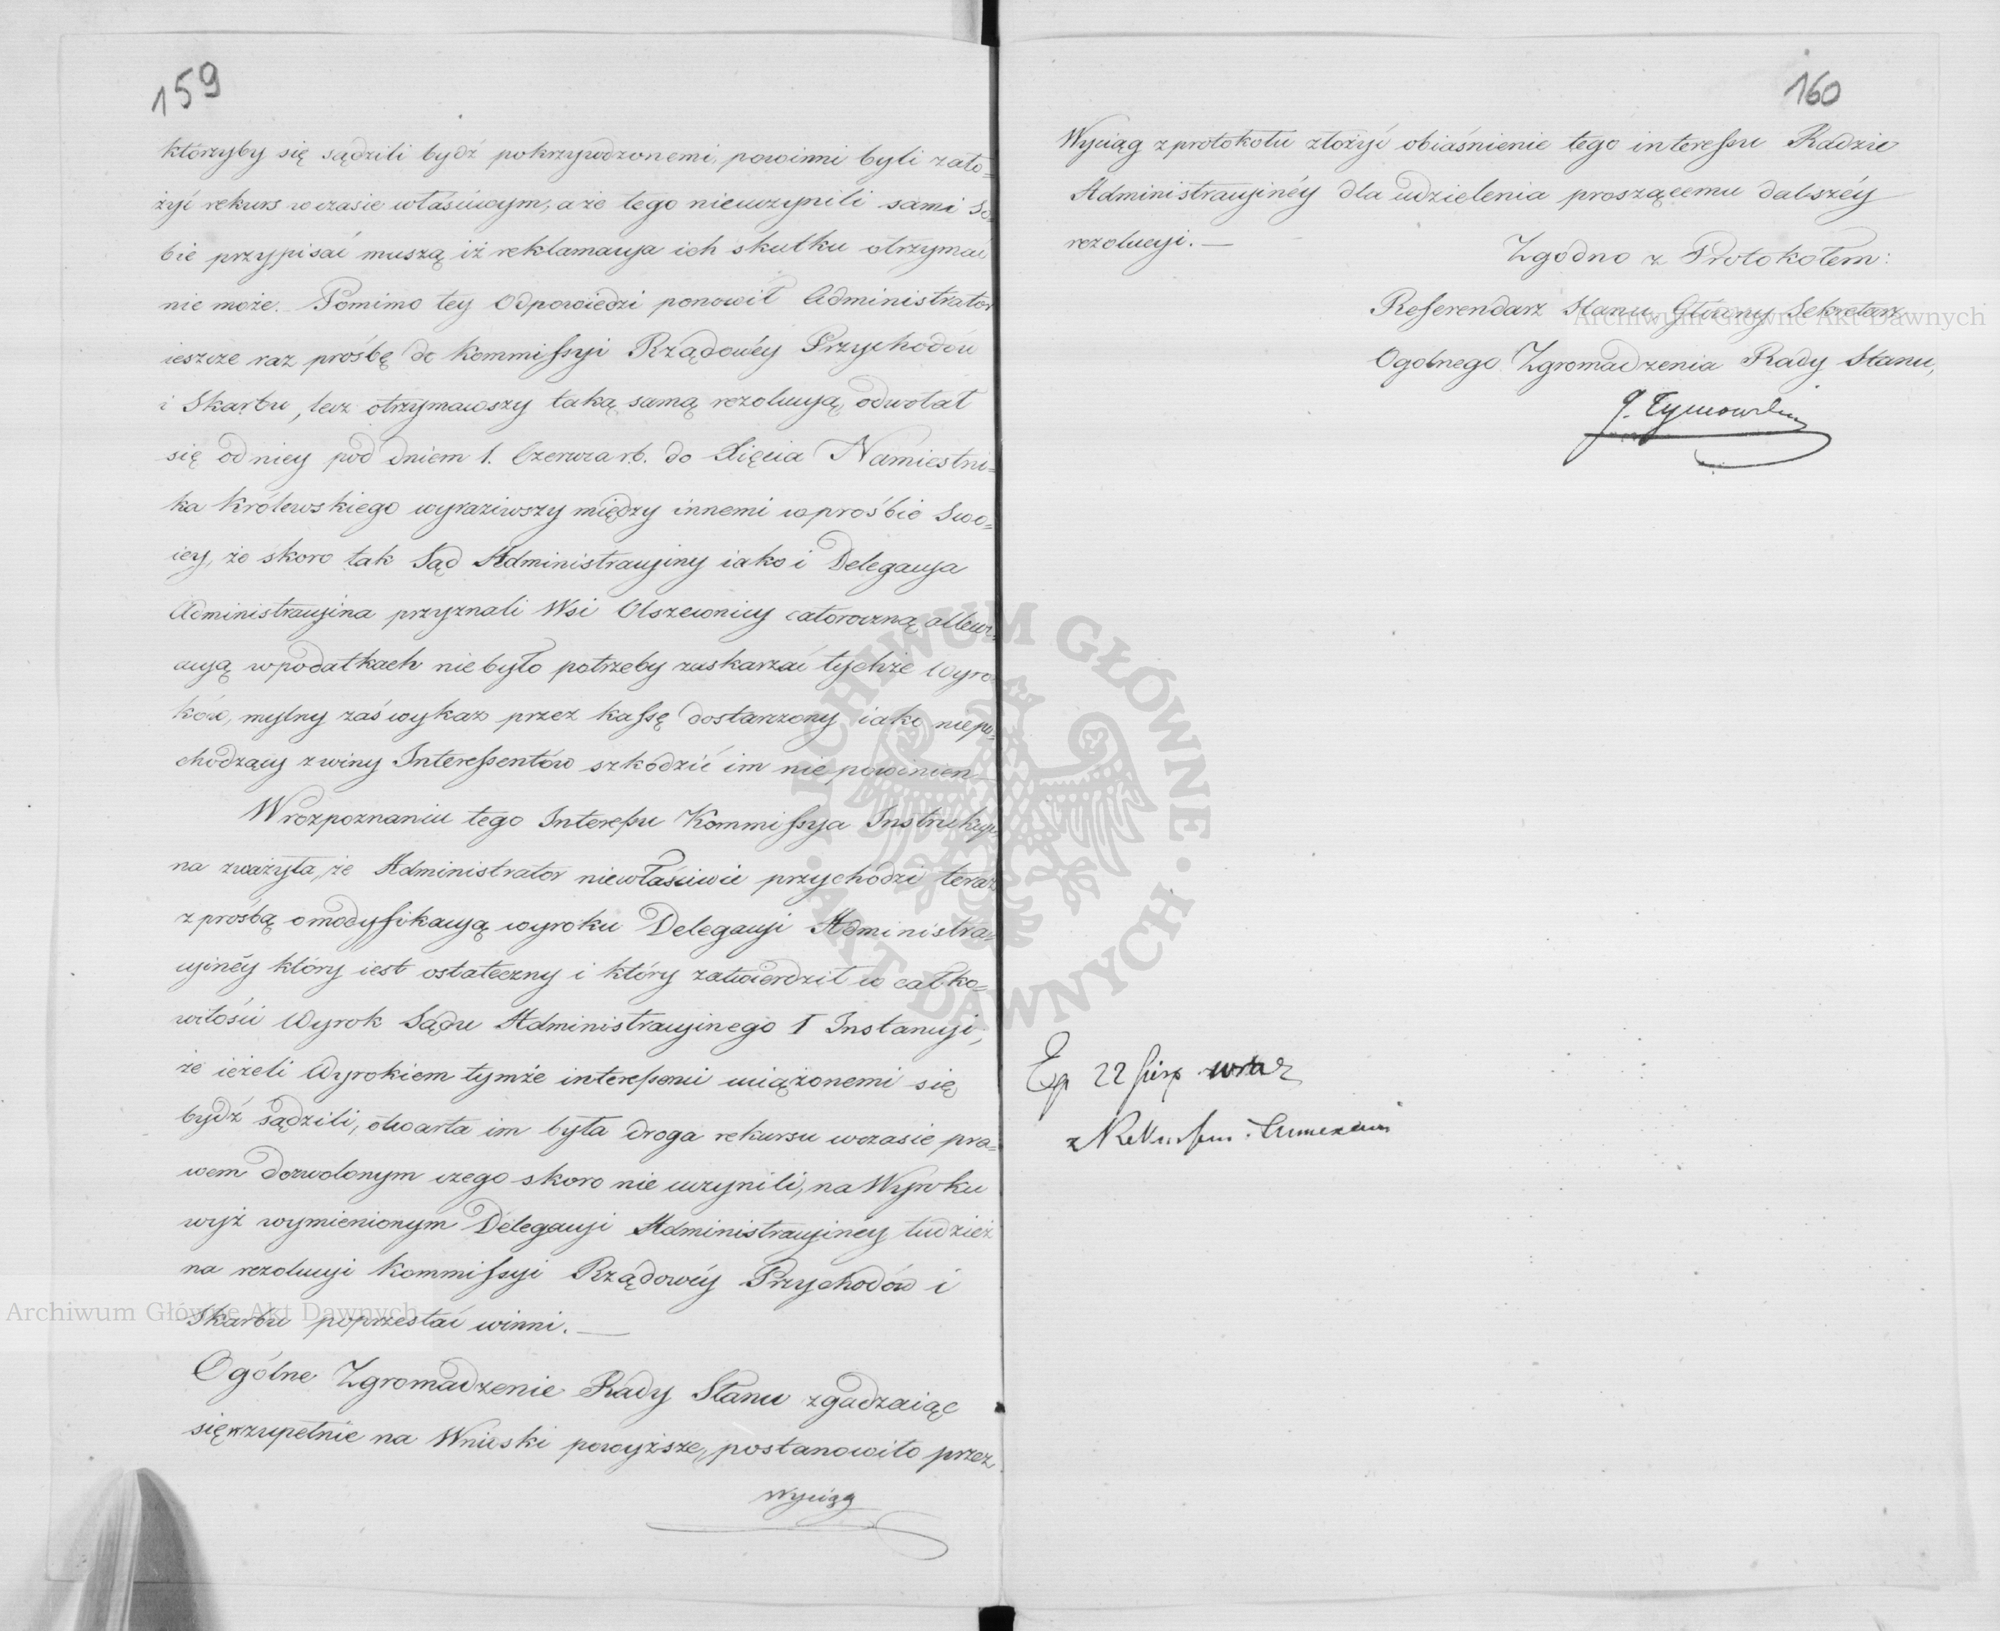 159
ktorzyby się sądzili bydź pokrzywdzonemi, powinni byli zało-
żyć rekurs w czasie właściwym, a że tego nieuczynili sami so-
bie przypisać muszą iż reklamacya ich skutku otrzymać
nie może. Pomimo tey Odpowiedzi ponowił Administrator
ieszcze raz prośbę do Kommissyi Rządowéy Przychodów
i Skarbu, lecz otrzymawszy taką samą rezolucyą, odwołał
się od niey pod dniem 1. Czerwca r.b. do Xięcia Namiestni-
ka Królewskiego wyraziwszy między innemi w prośbie Swo-
iey, że skoro tak Sąd Administracyiny iako i Delegacya
Administracyina przyznali Wsi Olszewnicy całoroczną allewi-
acyą w podatkach nie było potrzeby zaskarzać tychże Wyro-
ków, mylny zaś wykaz przez kassę dostarczony iako niepo-
chodzący z winy Interessentów szkodzić im nie powinien
W rozpoznaniu tego Interessu Kommissya Instrukcyi-
na zważyła, że Administrator niewłaściwie przychodzi teraz
z prośbą o modyfikacyą wyroku Delegacyi Administra-
cyinéy który iest ostateczny i który zatwierdził w całko-
witości Wyrok Sądu Administracyinego I Instancyi,
że ieżeli Wyrokiem tymże interessenci uciążonemi się
bydź sądzili, otwarta im była droga rekursu w czasie pra-
wem dozwolonym czego skoro nie uczynili, na Wyroku
wyż wymienionym Delegacyi Administracyinéy tudzież
na rezolucyi Kommissyi Rządowéy Przychodów i
Skarbu poprzestać winni.
Ogólne Zgromadzenie Rady Stanu zgadzaiąc
się zupełnie na Wnioski powyższe, postanowiło przez
Wyciąg
160
Wyciąg z protokołu złożyć obiaśnienie tego interessu Radzie
Administracyinéy dla udzielenia proszącemu dalszéy
rezolucyi.
Zgodno z Protokołem:
Referendarz Stanu Główny Sekretarz
Ogolnego Zgromadzenia Rady Stanu,
J. Tymowski
22 sierp wraz
z
Archiwum Główne Akt Dawnych
Archiwum Główne Akt Dawnych
ARCHIWUM GŁÓWNE · AKT DAWNYCH ·